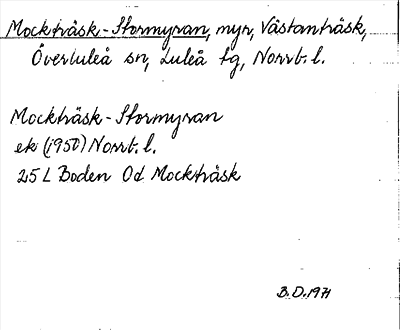 Mockträsk-Stormyran, myr, Västanträsk,
Överluleå sn, Luleå tg, Norrb. l.
Mockträsk-Stormyran
ek (1950) Norrb. l.
25 L Boden Od Mockträsk
B.D. 1971